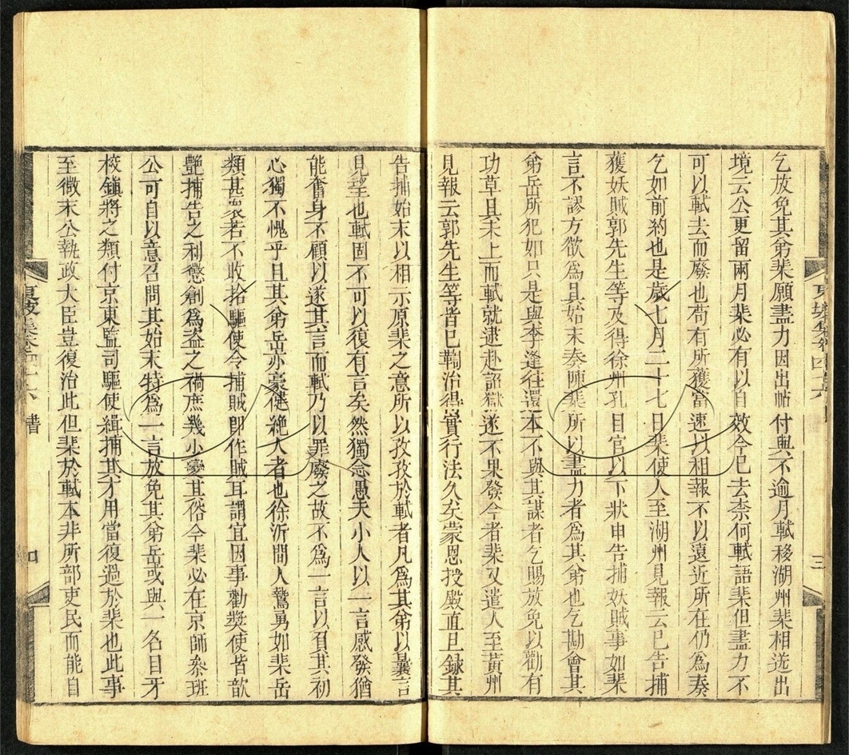 乞放免其弟棐願盡力因出帖付與不逾月軾移湖州棐相送出
境云公更留兩月棐必有以自效今已去柰何軾語棐但盡力不
可以軾去而廢也苟有所獲當速以相報不以遠近所在仍為奏
乞如前約也是歲七月二十七日棐使人至湖州見報云已告捕
獲妖賊郭先生等及得徐州孔目官以下狀申告捕妖賊事如棐
言不謬方欲為具始末奏陳棐所以盡力者為其弟也乞勘會其
弟岳所犯如只是與李逢往還本不與其謀者乞賜放免以勸有
功草具未上而軾就逮赴詔獄遂不果發今者棐又遣人至黃州
見報云郭先生等皆已鞫治得實行法久矣蒙恩授殿直且錄其
告捕始末以相示原棐之意所以孜孜於軾者凡為其弟以曩言
見望也軾固不可以復有言矣然獨念愚夫小人以一言感發猶
能奮身不顧以遂其言而軾乃以罪廢之故不為一言以負其初
心獨不愧乎且其弟岳亦豪健絕人者也徐沂間人鷙勇如棐岳
類甚衆若不收拾驅使令捕賊即作賊耳謂宜因事勸獎使皆歆
艷捕告之利懲創為盜之禍庶幾小變其俗今棐必在京師參班
公可自以意召問其始末特為一言放免其弟岳或與一名目牙
校鎮將之類付京東監司驅使緝捕其才用當復過於棐也此事
至微末公執政大臣豈復治此但棐於軾本非所部吏民而能自
東坡集卷四十六
三
東坡集卷四十六 書
四